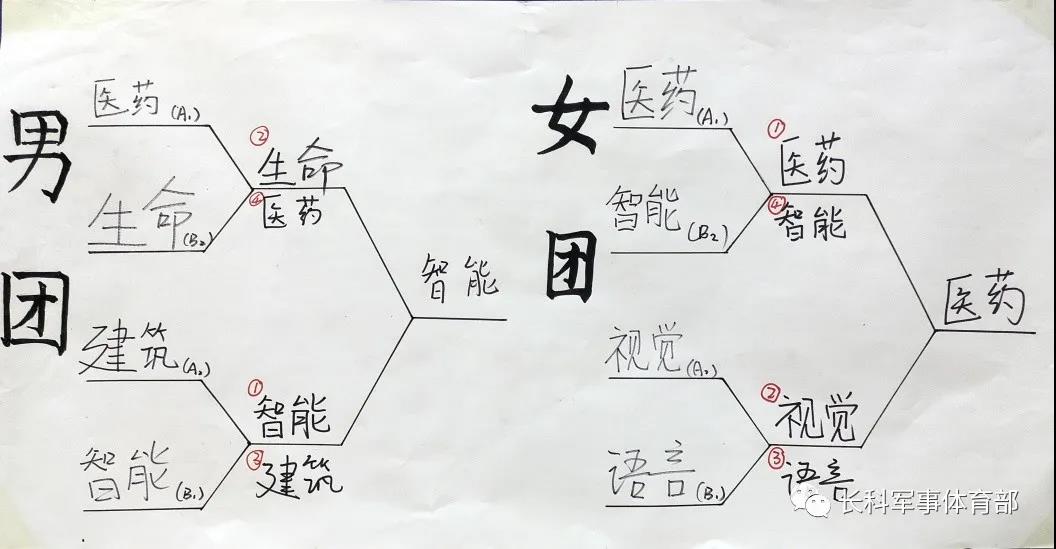 男团
医药(A₁)
生命(B₂)
②
生命
④
医药
建筑(A₂)
智能(B₁)
①
智能
③
建筑
智能
女团
医药(A₁)
智能(B₂)
①
医药
④
智能
视觉(A₂)
语言(B₁)
②
视觉
③
语言
医药
长科军事体育部